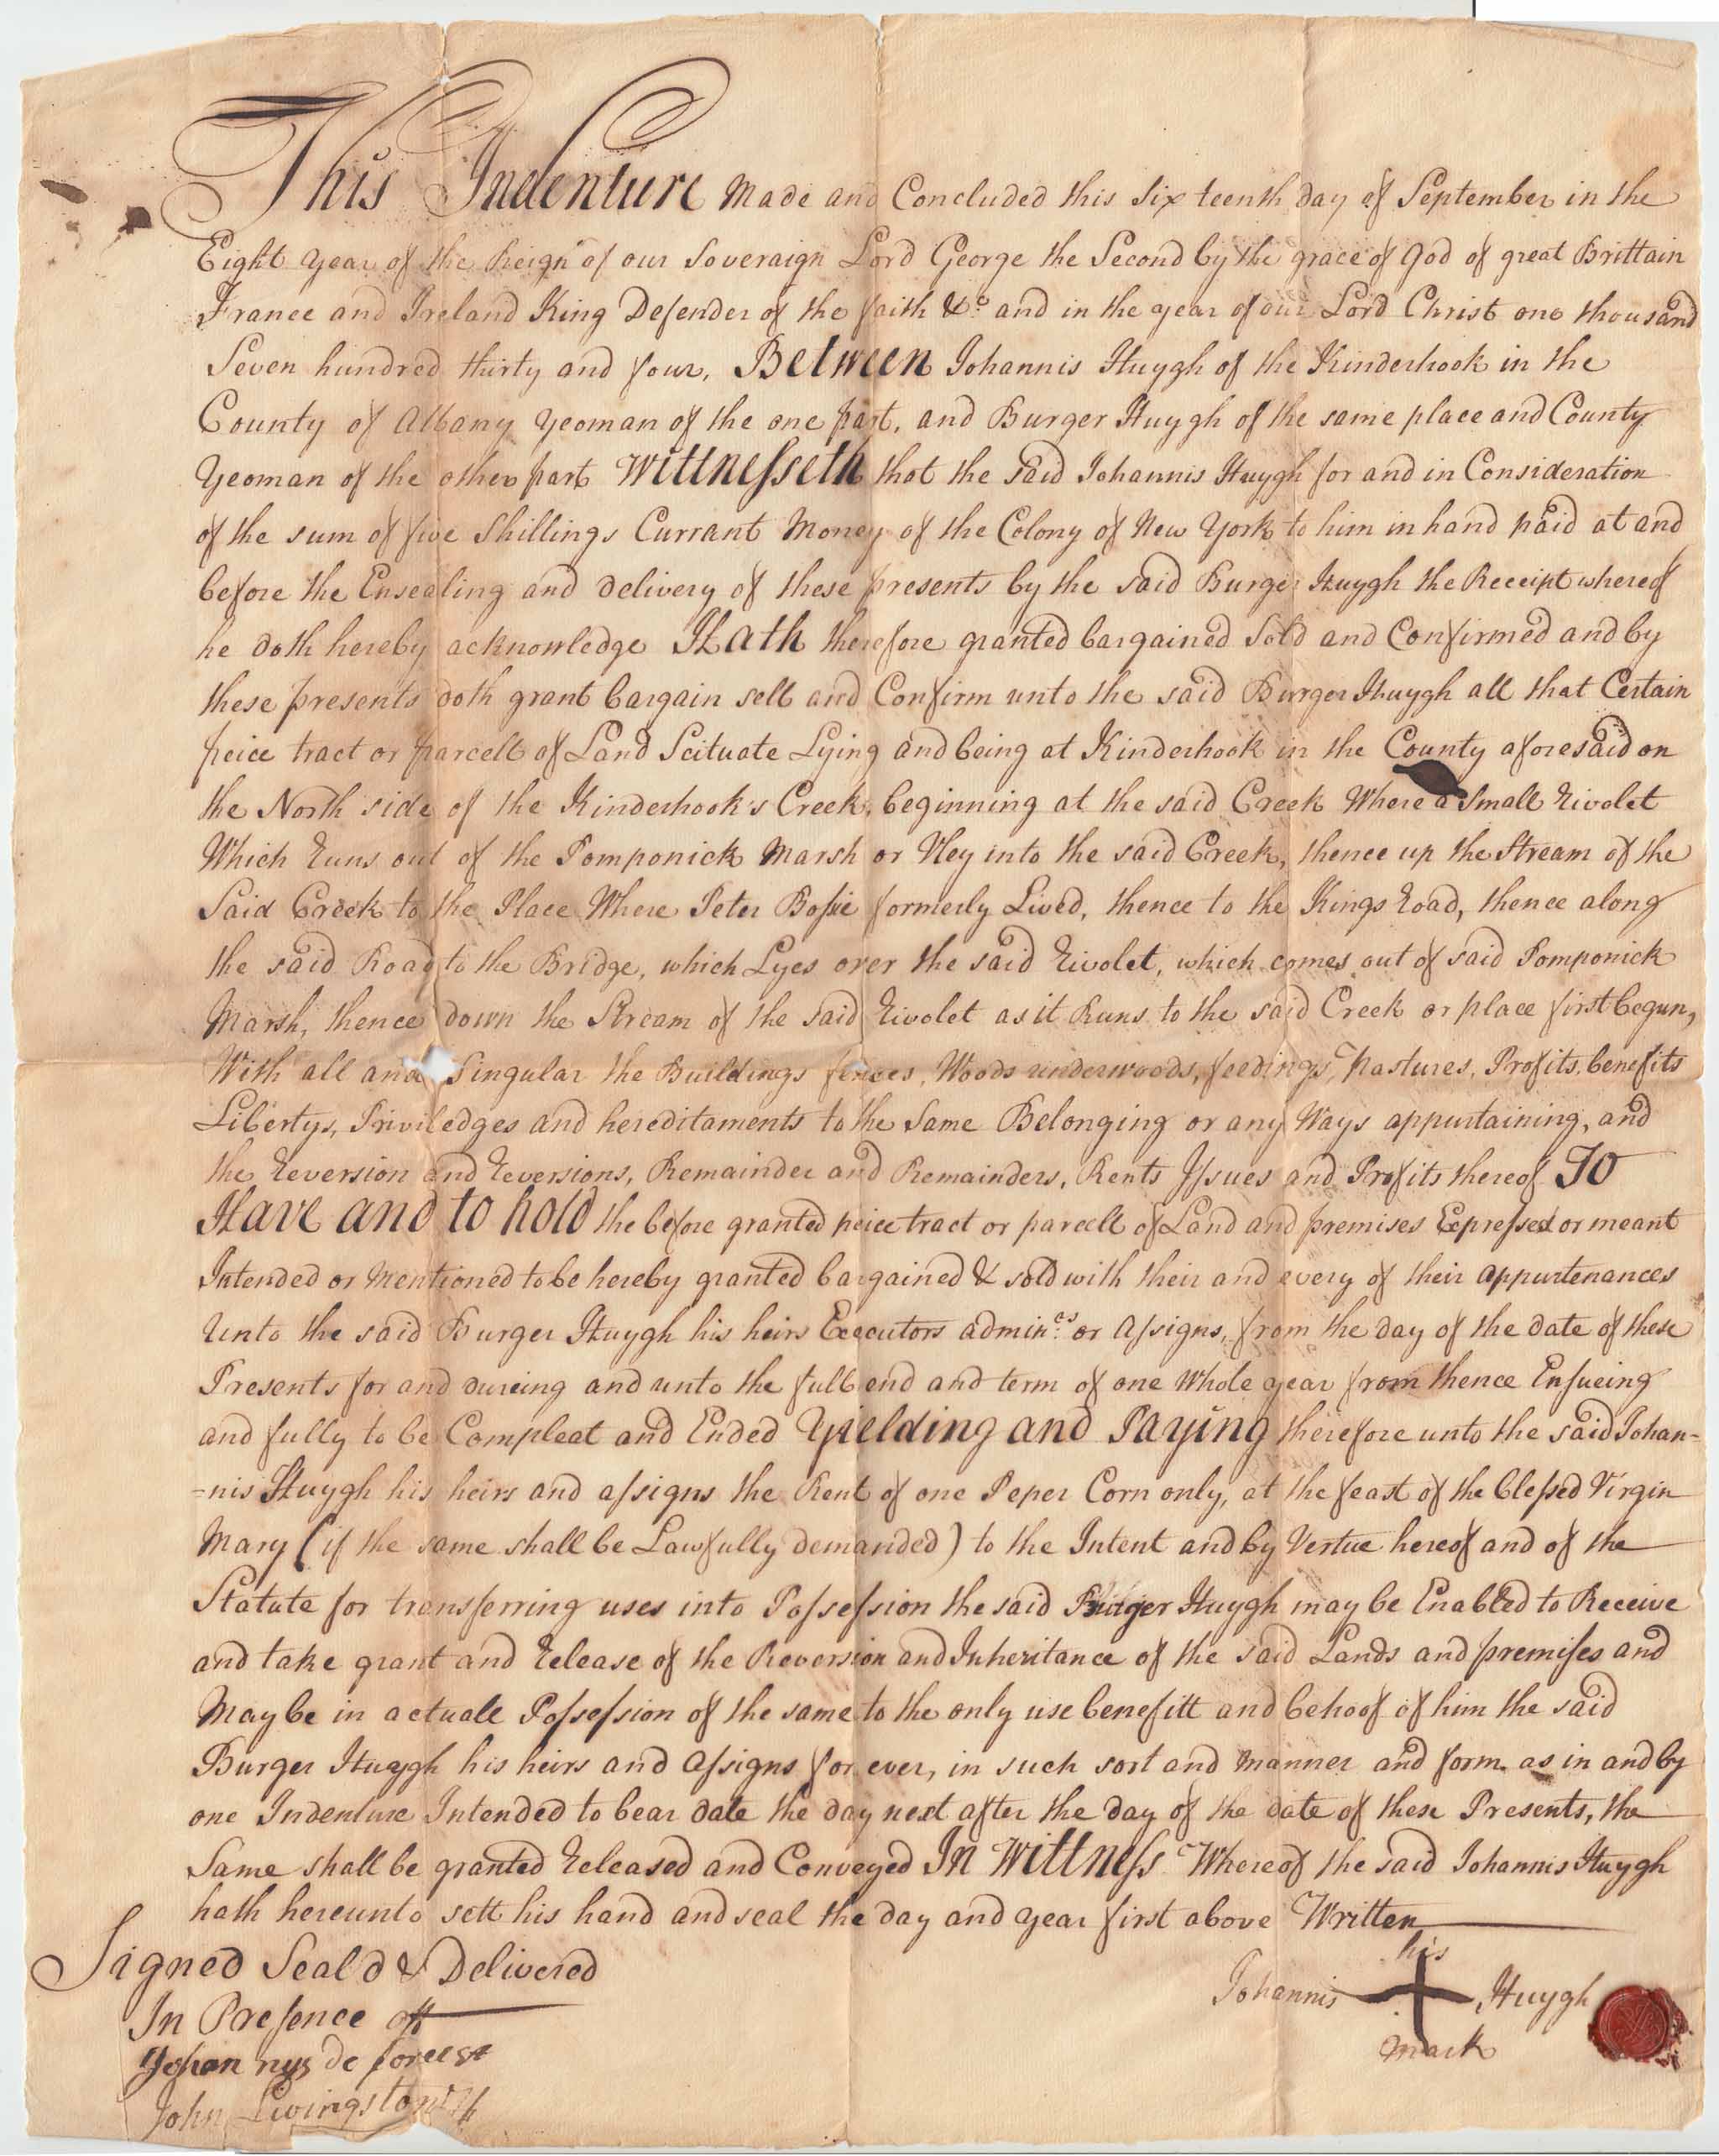 This Indenture Made and Concluded this Six teenth day of September in the
Eight year of the Reign of our Soveraign Lord George the Second by the grace of God of great Brittain
France and Ireland King Defender of the faith &c and in the year of our Lord Christ one thousand
Seven hundred thirty and four, Between Johannis Huygh of the Kinderhook in the
County of Albany yeoman of the one part, and Burger Huygh of the same place and County
Yeoman of the other part Wittnesseth that the said Johannis Huygh for and in Consideration
of the sum of five Shillings Currant Money of the Colony of New York to him in hand paid at and
before the Ensealing and delivery of these presents by the said Burger Huygh the Receipt whereof
he doth hereby acknowledge Hath therefore granted bargained Sold and Confirmed and by
these presents doth grant bargain sell and Confirm unto the said Burger Huygh all that Certain
peice tract or parcell of Land Scituate Lying and being at Kinderhook in the County aforesaid on
the North side of the Kinderhook's Creek, beginning at the said Creek Where a Small Rivolet
Which Runs out of the Pomponick Marsh or Vley into the said Creek, thence up the Stream of the
Said Creek to the Place Where Peter Bossie formerly Lived, thence to the Kings Road, thence along
the said Road to the Bridge, which Lyes over the said Rivolet, which comes out of said Pomponick
Marsh, thence down the Stream of the said Rivolet as it Runs to the said Creek or place first begun,
With all and Singular the Buildings fences, Woods underwoods, feedings, Pastures, Profits, benefits
Libertys, Priviledges and hereditaments to the Same Belonging or any Ways appurtaining, and
the Reversion and Reversions, Remainder and Remainders, Rents Issues and Profits thereof To
Have and to hold the before granted peice tract or parcell of Land and premises Expressed or meant
Intended or Mentioned to be hereby granted bargained & sold with their and every of their appurtenances
Unto the said Burger Huygh his heirs Executors admin.rs or Assigns, from the day of the date of these
Presents for and dureing and unto the full end and term of one Whole year from thence Ensueing
and fully to be Compleat and Ended Yielding and Paying therefore unto the said Johan-
-nis Huygh his heirs and assigns the Rent of one Peper Corn only, at the feast of the blessed Virgin
Mary (if the same shall be Lawfully demanded) to the Intent and by Vertue hereof and of the
Statute for transferring uses into Possession the said Burger Huygh may be Enabled to Receive
and take grant and Release of the Reversion and Inheritance of the said Lands and premises and
May be in actuall Possession of the same to the only use benefitt and behoof of him the said
Burger Huygh his heirs and Assigns for ever, in such sort and manner and form as in and by
one Indenture Intended to bear date the day next after the day of the date of these Presents, the
Same shall be granted Released and Conveyed In Wittness Whereof the said Johannis Huygh
hath hereunto sett his hand and seal the day and year first above Written
Signed Seal'd & Delivered
In Presence off
Johannys de foreest
John Livingston
his
Johannis + Huygh
mark